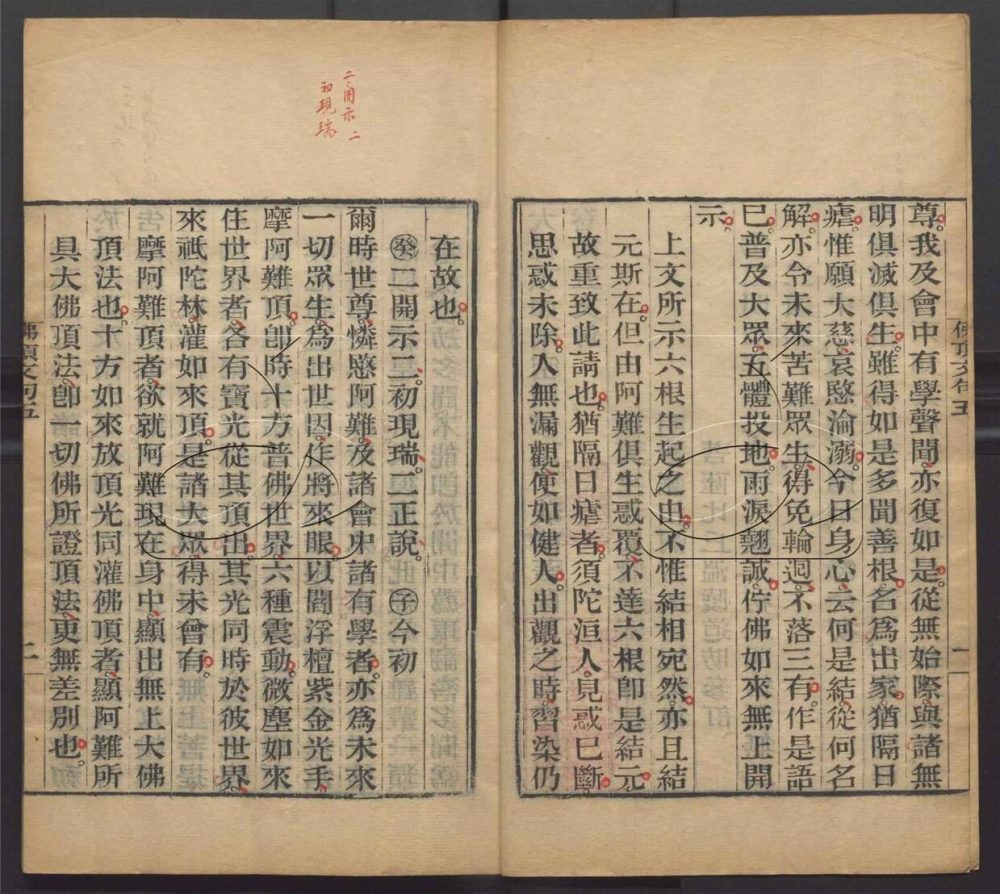 尊。我及會中有學聲聞、亦復如是。從無始際、與諸無
明俱滅俱生。雖得如是多聞善根、名爲出家、猶隔日
瘧。惟願大慈、哀愍淪溺。今日身心、云何是結、從何名
解。亦令未來苦難眾生、得免輪迴、不落三有。作是語
已、普及大眾、五體投地、雨淚翹誠、佇佛如來無上開
示。
上文所示六根生起之由、不惟結相宛然、亦且結
元斯在。但由阿難俱生惑覆、不達六根卽是結元、
故重致此請也。猶隔日瘧者、須陀洹人、見惑已斷、
思惑未除、入無漏觀、便如健人。出觀之時、習染仍
佛頂文句五
一
二開示二
初現瑞
在故也。
㊀癸二開示二。初現瑞。二正說。㊀子今初
爾時世尊、憐愍阿難、及諸會中諸有學者、亦爲未來
一切眾生、爲出世因、作將來眼。以閻浮檀紫金光手、
摩阿難頂。卽時十方普佛世界、六種震動。微塵如來
住世界者、各有寶光從其頂出。其光同時於彼世界、
來祇陀林、灌如來頂。是諸大眾、得未曾有。
摩阿難頂者、欲就阿難現在身中、顯出無上大佛
頂法也。十方如來放頂光同灌佛頂者、顯阿難所
具大佛頂法、卽一切佛所證頂法、更無差別也。
佛頂文句五
二